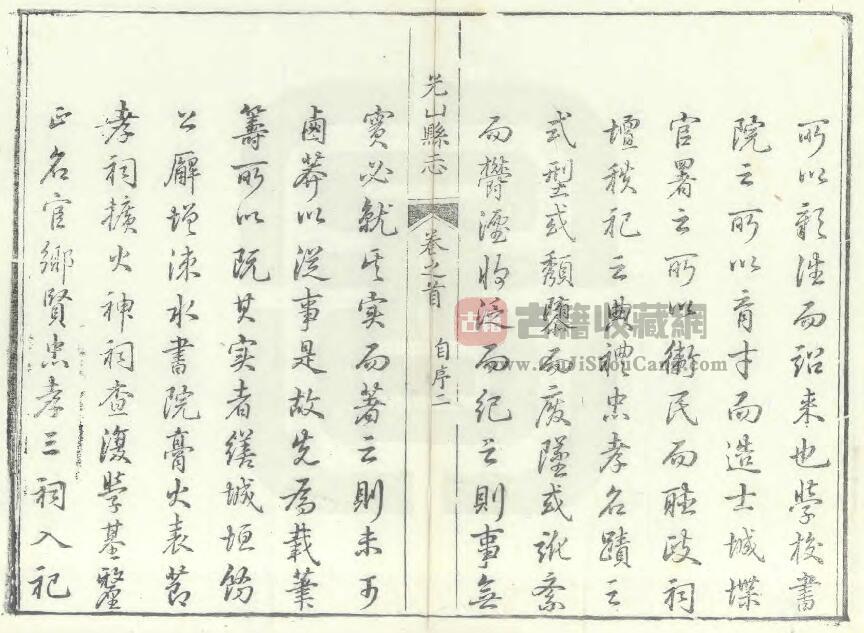 所以彰往而詔来也學校書
院之所以育才而造士城堞
官署之所以衛民而聽政祠
壇秩祀之典禮忠孝名蹟之
式型或頽隳而廢墜或訛紊
而欝湮将泛而纪之則事無
光山縣志 卷之首 自序二
實必就其实而著之則未可
鹵莽以從事是故先為載筆
籌所以既其实者缮城垣饬
公廨增涑水書院膏火表節
孝祠擴火神祠查復學基釐
正名宦鄉賢忠孝三祠入祀
古籍 古籍收藏網
www.GuJiShouCang.com